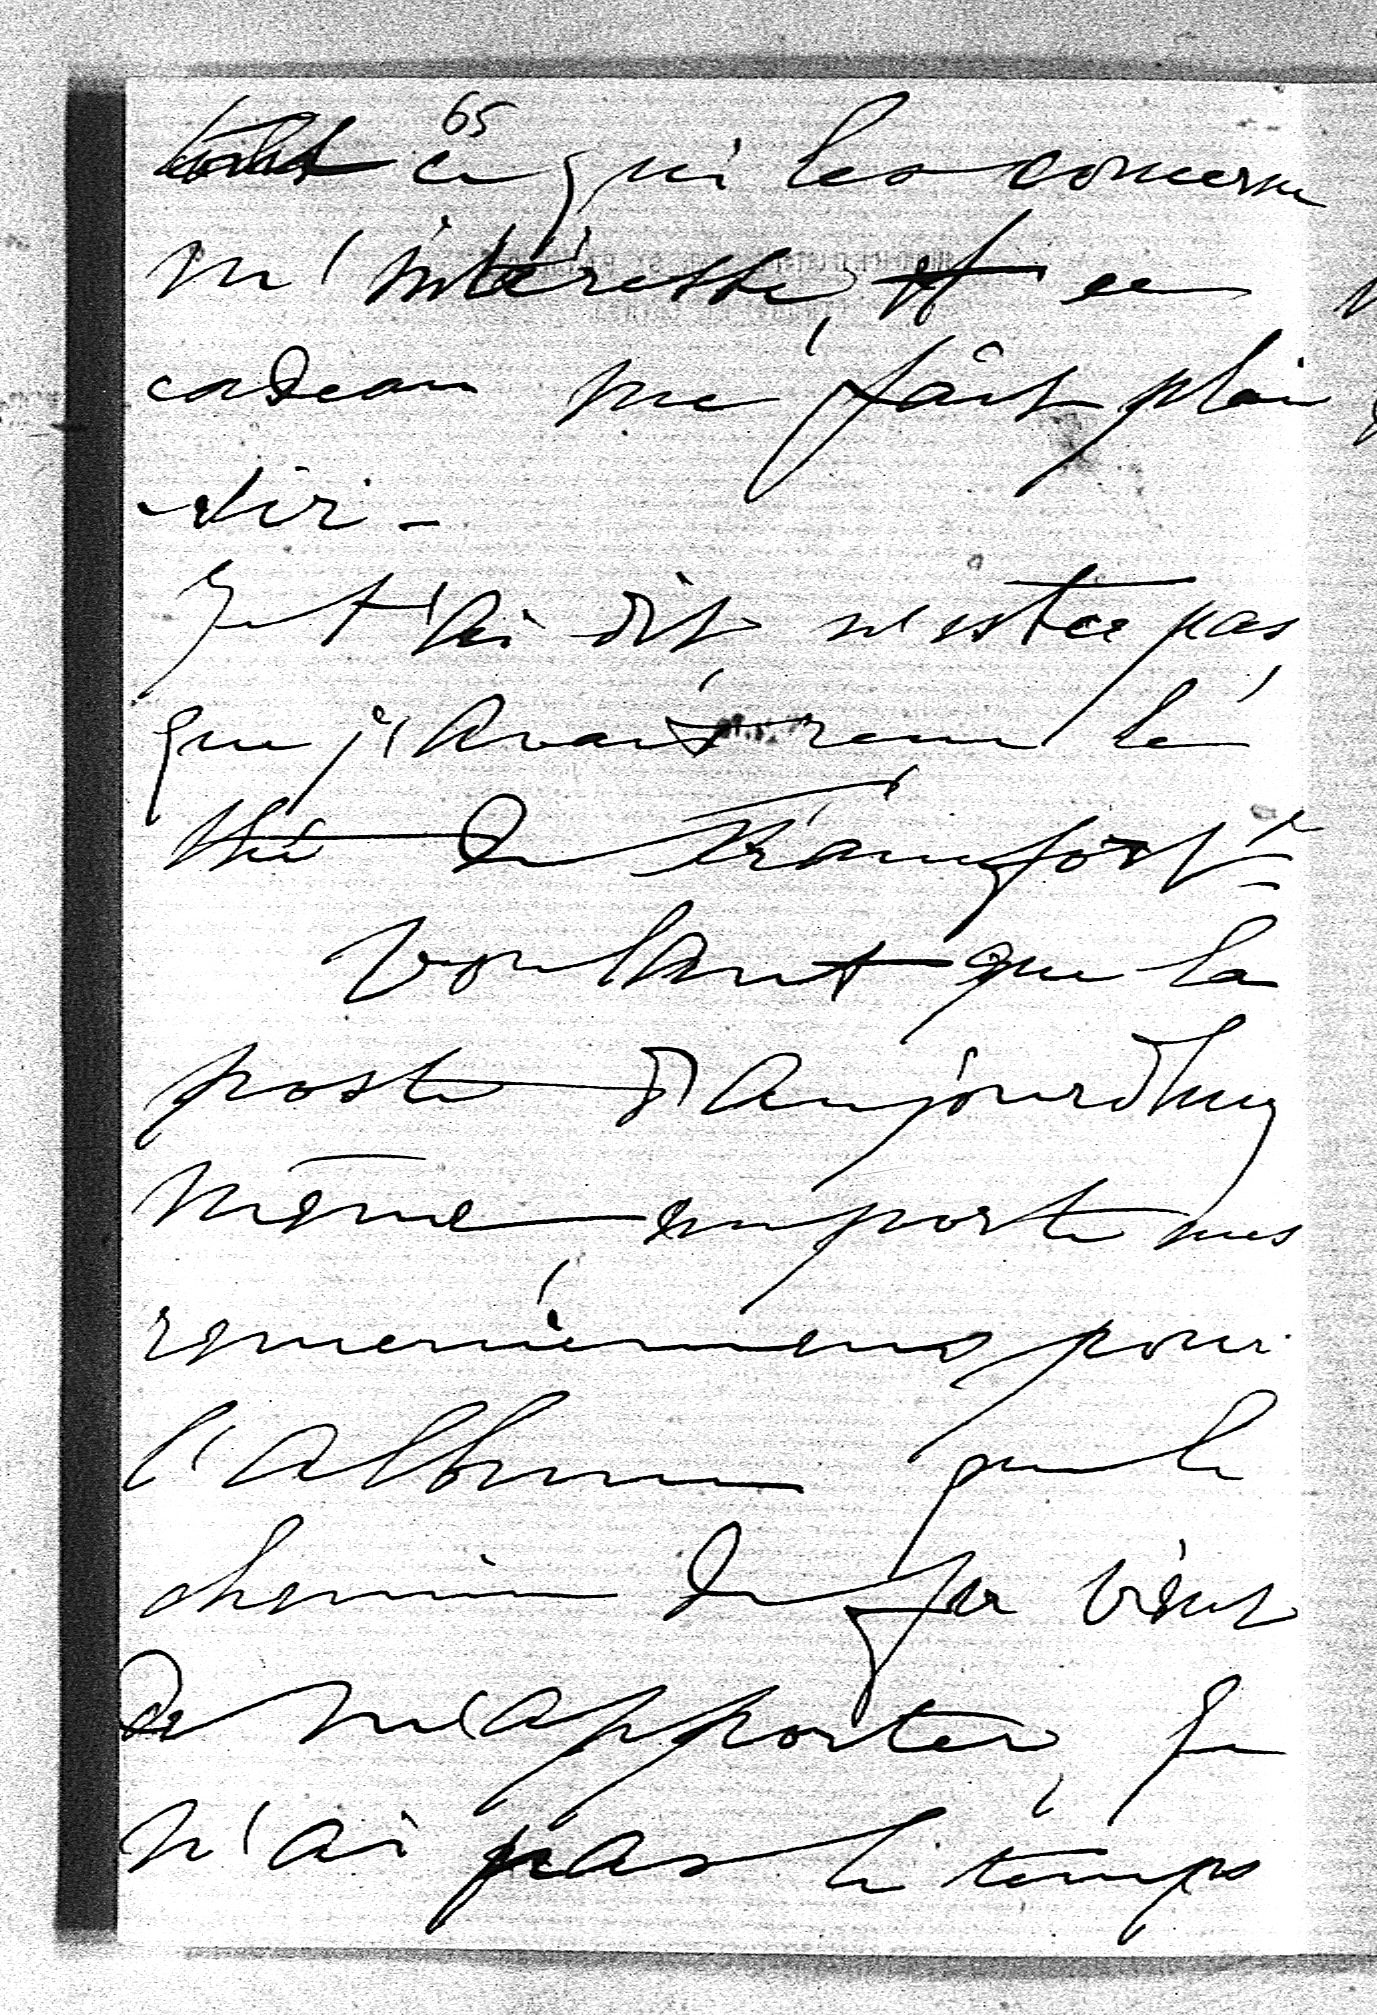 65
tout ce qui les concerne
m'intéresse, et ce
cadeau me fait plai
-sir -
Je t'ai dit, n'est ce pas,
que j'avais recu le
thé de Francfort -
Voulant que la
poste d'aujourdhuy
même emporte mes
remerciemens pour
l'album que le
chemin de fer vient
de m'apporter, Je
n'ai pas le temps